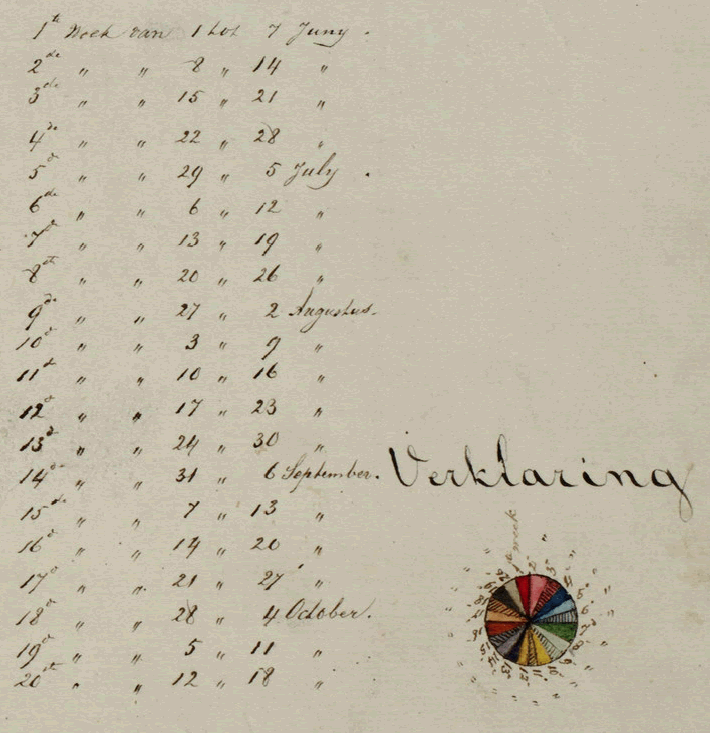 1ste Week van 1 tot 7 Juny.
2de " " 8 " 14 "
3de " " 15 " 21 "
4de " " 22 " 28 "
5d " " 29 " 5 July.
6de " " 6 " 12 "
7d " " 13 " 19 "
8ste " " 20 " 26 "
9de " " 27 " 2 Augustus.
10d " " 3 " 9 "
11d " " 10 " 16 "
12d " " 17 " 23 "
13d " " 24 " 30 "
14de " " 31 " 6 September.
15de " " 7 " 13 "
16d " " 14 " 20 "
17d " " 21 " 27 "
18d " " 28 " 4 October.
19d " " 5 " 11 "
20ste " " 12 " 18 "
Verklaring
week